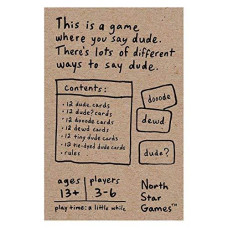 This is a game
where you say dude.
There's lots of different
ways to say dude.
Contents:
• 12 dude cards
• 12 dude? cards
• 12 dooode cards
• 12 dewd cards
• 12 tiny dude cards
• 12 tie-dyed dude cards
• rules
dooode
dewd
dude?
ages
13+
players
3-6
play time: a little while
North
Star
Games™